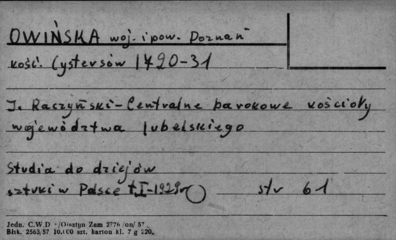 OWIŃSKA woj. i pow. Poznań
kość. Cystersów 1720-31
J. Raczyński - Centralne barokowe kościoły
województwa lubelskiego
Studia do dziejów
sztuki w Polsce t I - 1929r str 61
Jedn. C.W.D Olsztyn Zam
Błsk. 2563/57 10.000 szt. karton kl. 7 g 220.